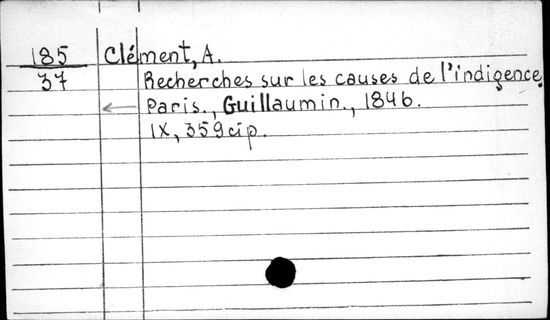 185 Clément, A.
37 Recherches sur les causes de l'indigence
Paris., Guillaumin., 1846.
IX, 359 cip.